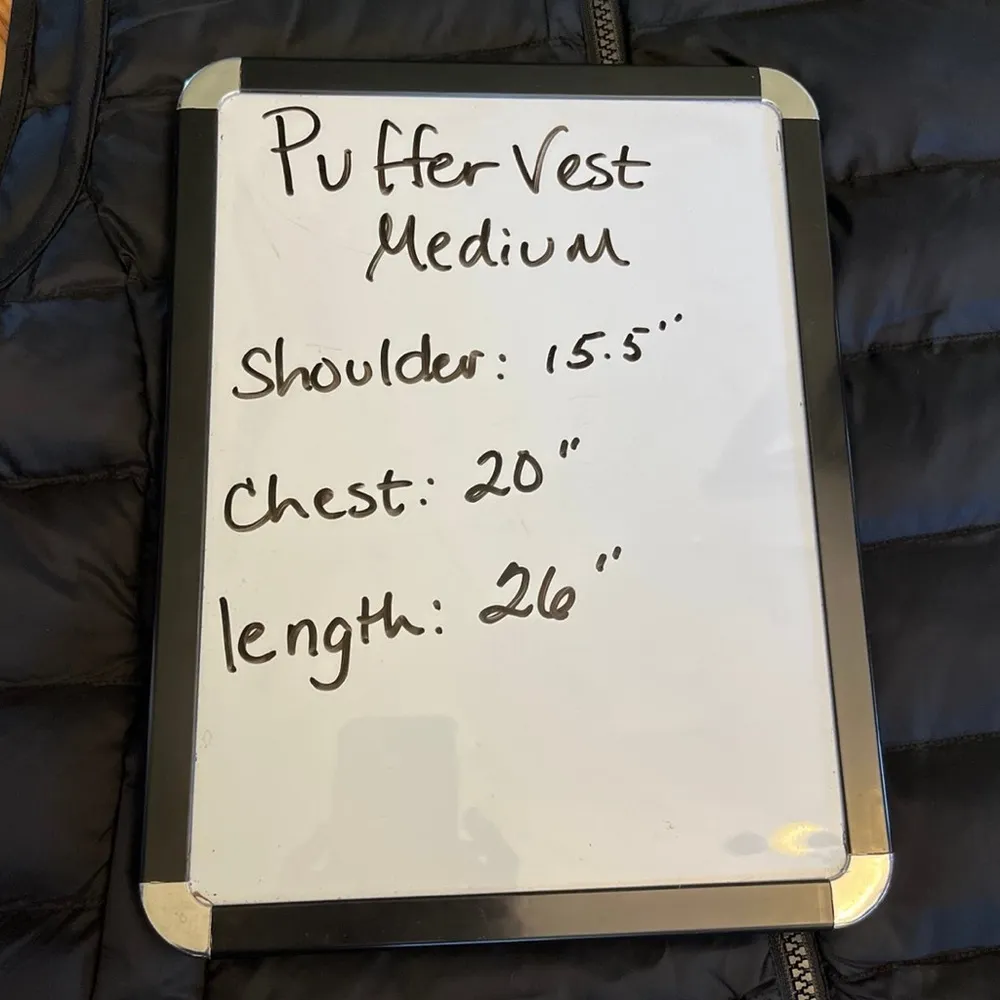 Puffer Vest
Medium
Shoulder: 15.5"
Chest: 20"
length: 26"